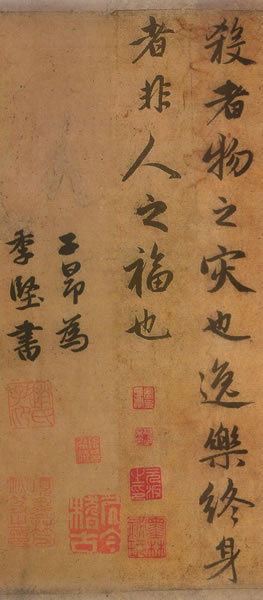 殺者物之灾也逸樂終身
者非人之福也
子昂為
季堅書